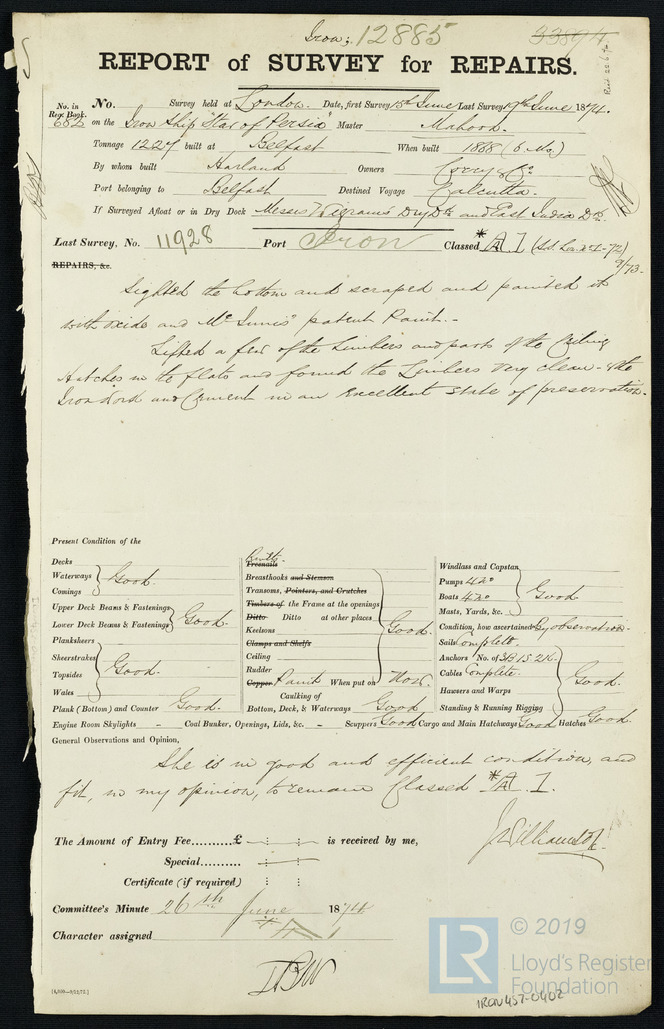 Iron; 12885
53894
REPORT of SURVEY for REPAIRS.
No. in Reg. Book. No. Survey held at London. Date, first Survey 15th June Last Survey 17th June 1874.
682 on the Iron Ship "Star of Persia" Master Mahood.
Tonnage 1227 built at Belfast When built 1868 (6 Mo.)
By whom built Harland Owners Corry & Co
Port belonging to Belfast Destined Voyage Calcutta.
If Surveyed Afloat or in Dry Dock Messrs Wigram's Dry Dk and East India Dk.
Last Survey, No. 11928 Port Iron Classed *A 1
9/73.
REPAIRS, &c.
Sighted the bottom and scraped and painted it
with oxide and McInnis' patent Paint.
Lifted a few of the Limbers and parts of the Ceiling
Hatches in the flats and found the Limbers very clean - the
Iron work and Cement in an Excellent state of preservation.
Present Condition of the
Decks
Waterways
Comings
Good.
Upper Deck Beams & Fastenings
Lower Deck Beams & Fastenings
Good.
Planksheers
Sheerstrakes
Topsides
Wales
Good.
Plank (Bottom) and Counter Good.
Treenails
Breasthooks and Stemson
Transoms, Pointers, and Crutches
Timbers of the Frame at the openings
Ditto Ditto at other places
Keelsons
Clamps and Shelfs
Ceiling
Rudder
Good.
Copper Paint When put on Now.
Caulking of
Bottom, Deck, & Waterways Good
Windlass and Capstan
Pumps
Boats
Masts, Yards, &c.
Good.
Condition, how ascertained By observation.
Sails Complete
Anchors No. of 3B 1S 2K.
Cables Complete.
Hawsers and Warps
Standing & Running Rigging
Good.
Engine Room Skylights - Coal Bunker, Openings, Lids, &c. - Scuppers Good Cargo and Main Hatchways Good Hatches Good.
General Observations and Opinion,
She is in good and efficient condition, and
fit, in my opinion, to remain Classed *A 1.
The Amount of Entry Fee..........£ : : is received by me,
Special.......... : :
Certificate (if required) : :
Committee's Minute 26th June 1874
Character assigned
© 2019
LR
Lloyd's Register
Foundation
IRON457-0402